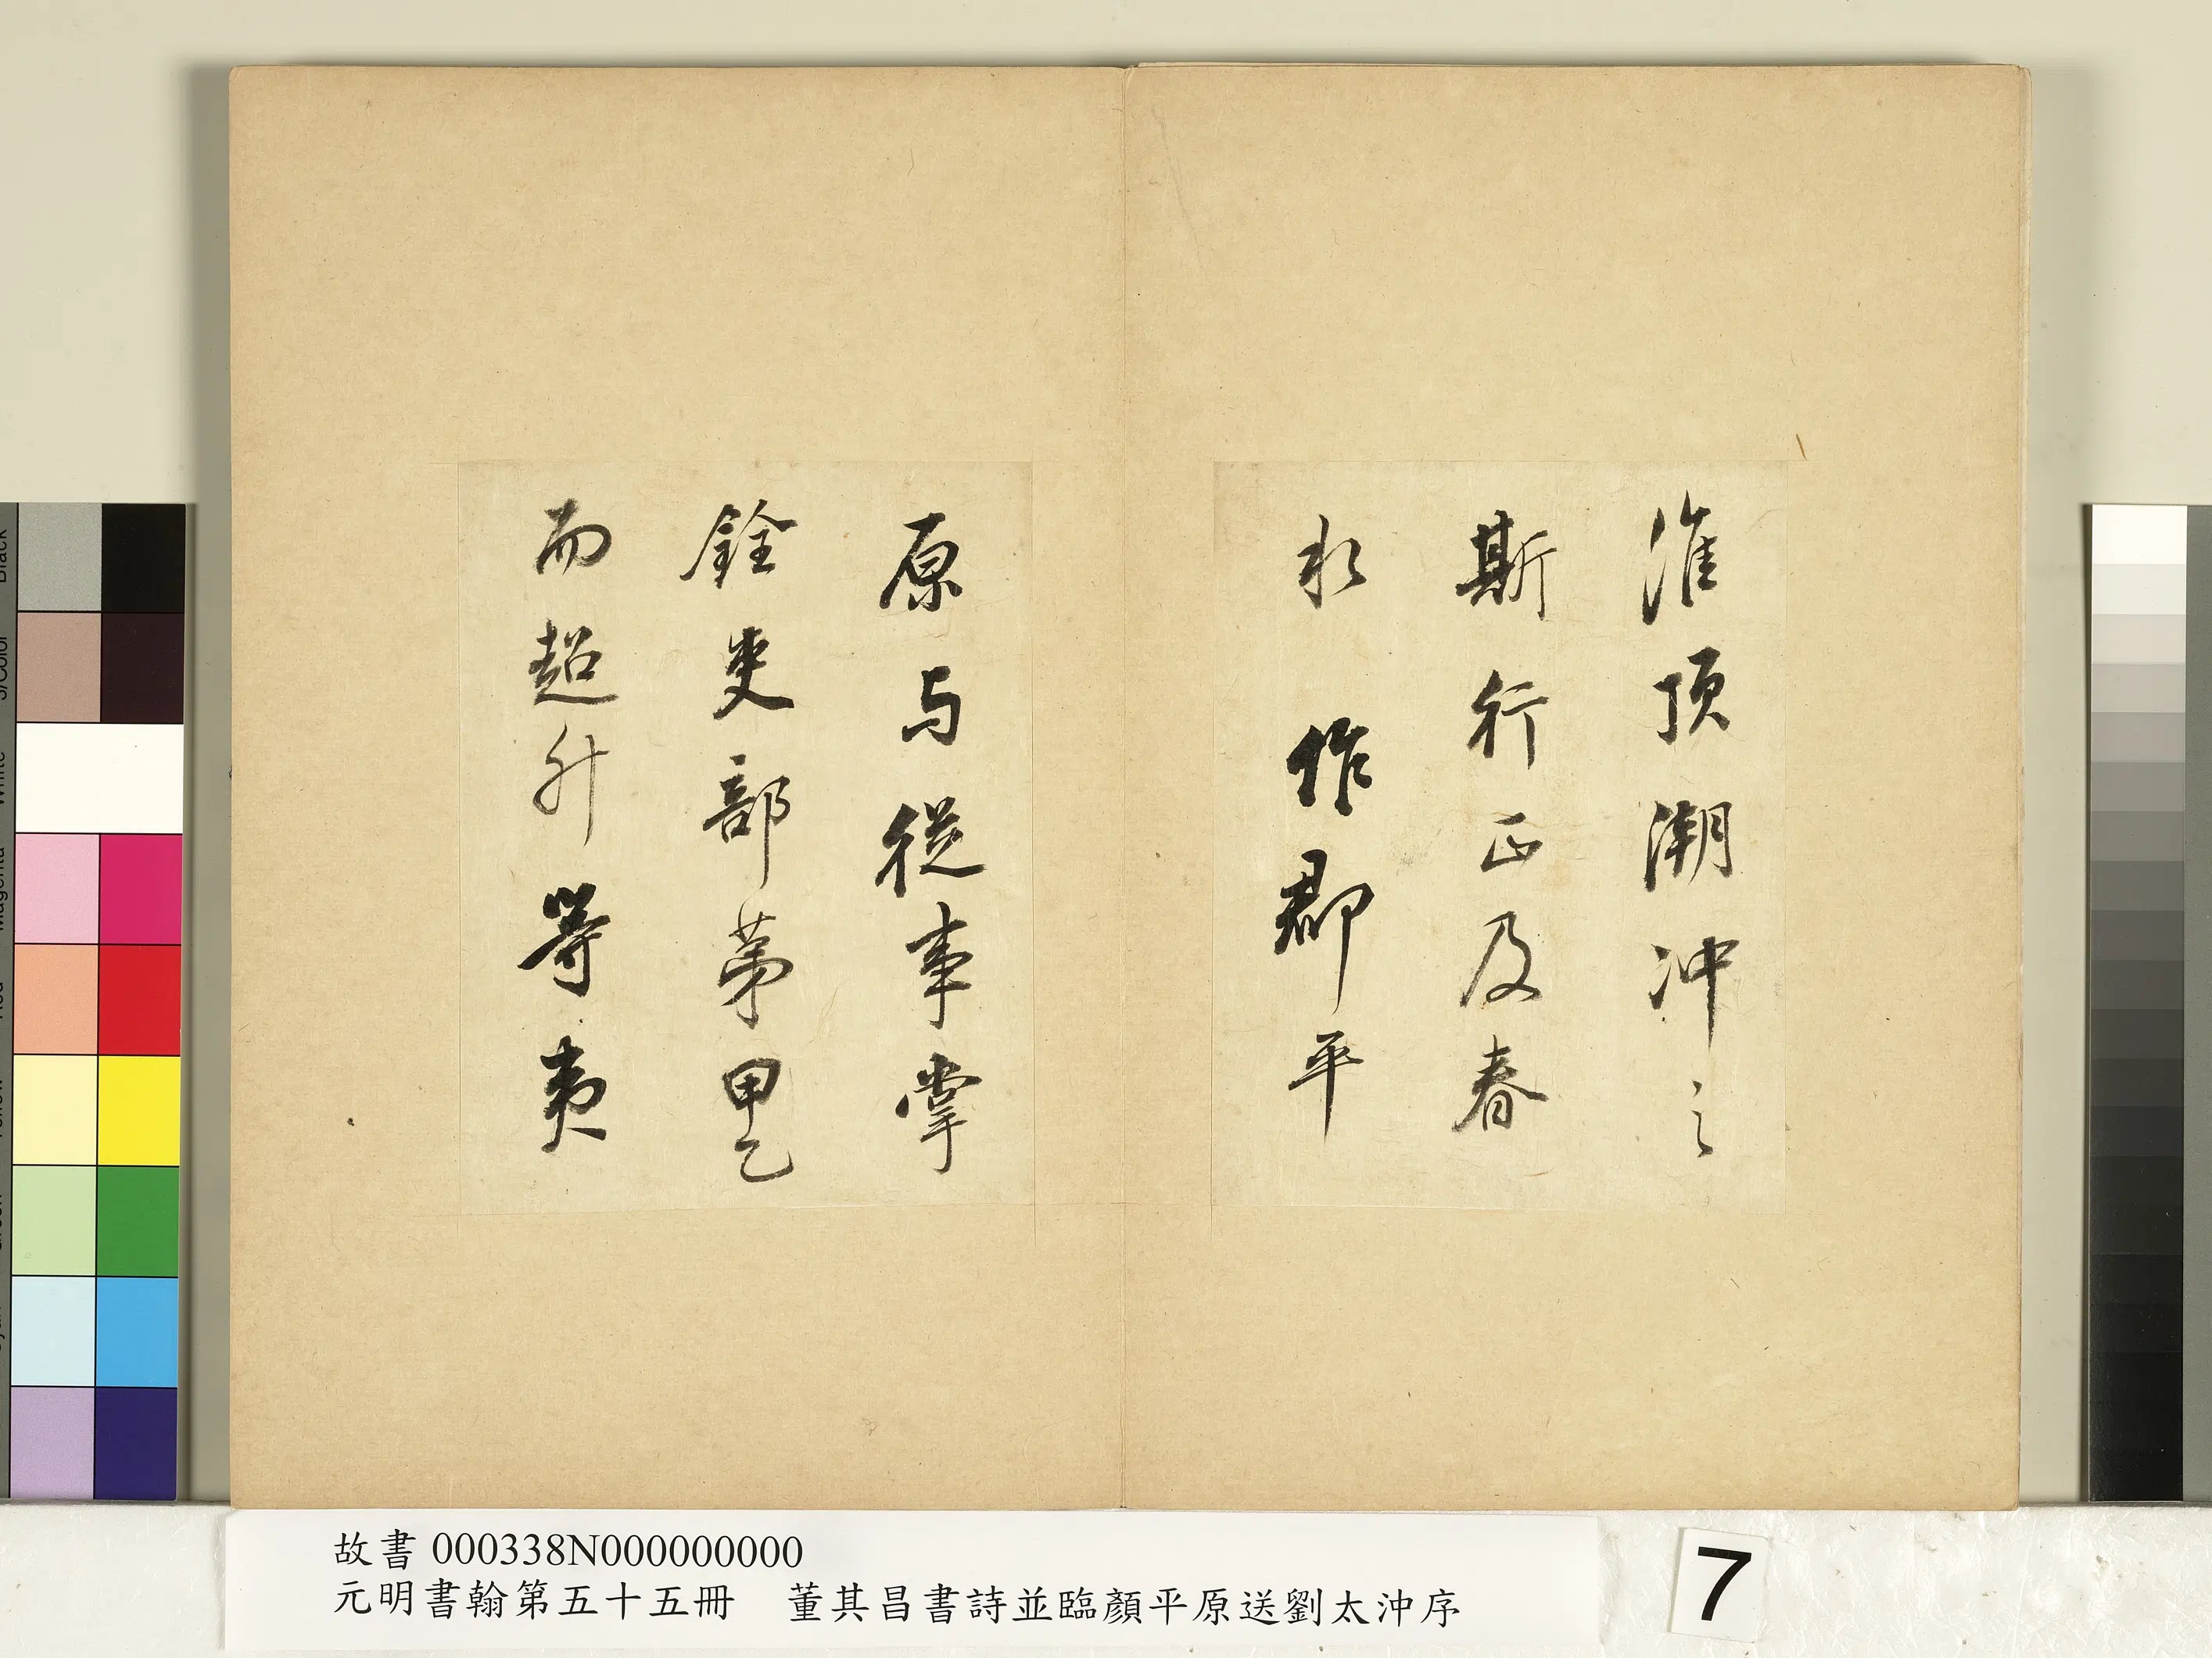 淮頂潮冲之
斯行正及春
水 作郡平
原与從事掌
銓吏部苐甲乙
而超升等夷
故書 000338N000000000
元明書翰第五十五冊 董其昌書詩並臨顏平原送劉太沖序
7
Black
3/Color
White
Magenta